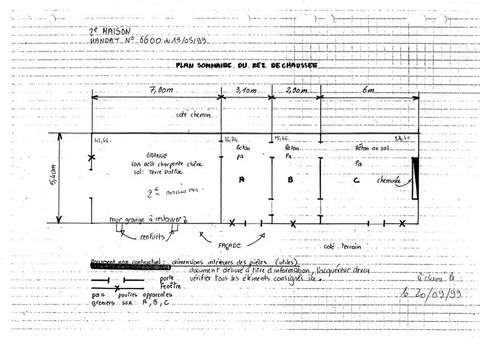 2e MAISON
MANDAT N° 6600 du 19/05/99
PLAN SOMMAIRE DU REZ DE CHAUSSEE
7,80m 3,10m 2,90m 6m
coté chemin
5,40m
GRANGE
sous actif charpente chêne
sol: Terre battue
2e maison
Béton
pa
A
Béton
Pa
B
Béton au sol
Pa
C
cheminée
mur grange à restaurer
renforts
FAÇADE
coté terrain
Document non contractuel: dimensions intérieures des pièces (utiles)
document délivré à titre d'information, l'acquéreur devra
vérifier tous les éléments consignés ici.
porte
fenêtre
pa = poutres apparentes
greniers sur A, B, C
le 20/09/99